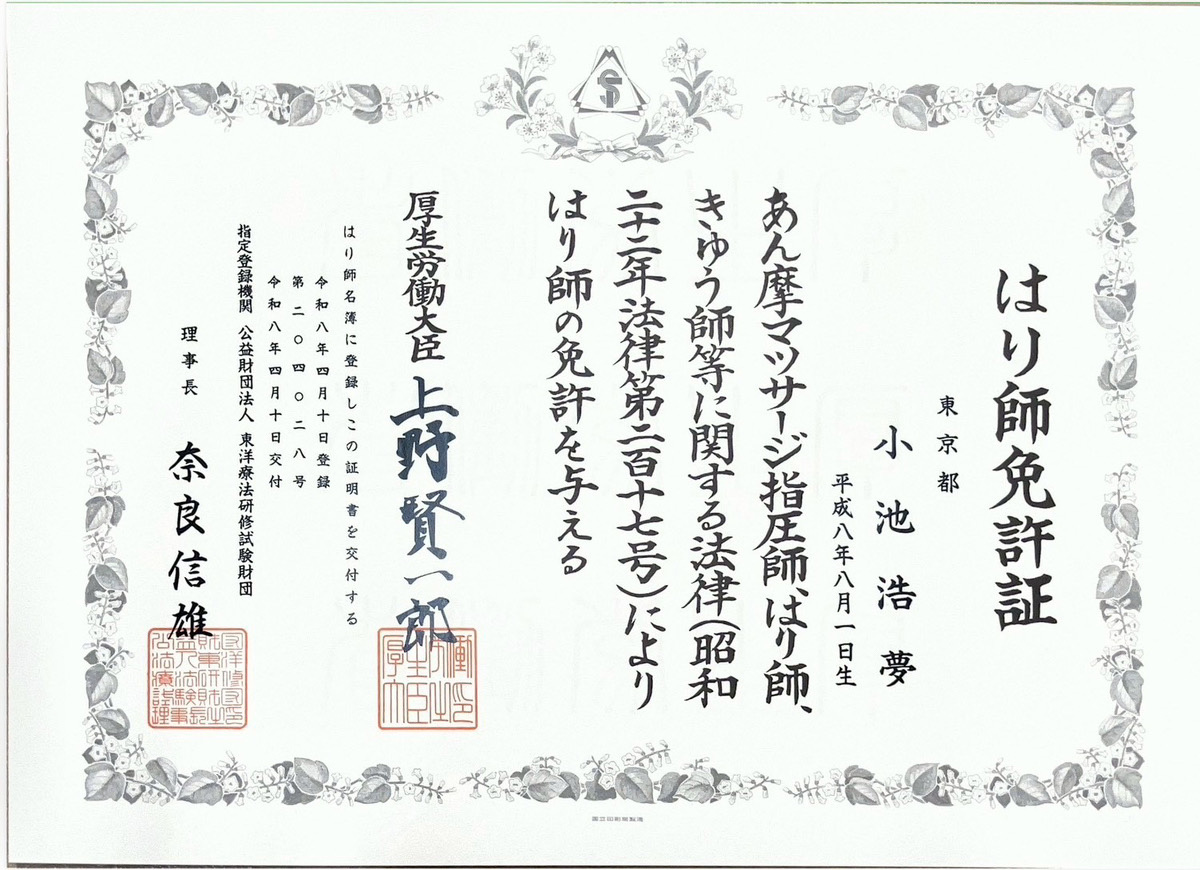 はり師免許証
東京都
小池浩夢
平成八年八月一日生
あん摩マツサージ指圧師、はり師、
きゆう師等に関する法律(昭和
二十二年法律第二百十七号)により
はり師の免許を与える
厚生労働大臣 上野賢一郎
はり師名簿に登録しこの証明書を交付する
令和八年四月十日登録
第二〇四〇二八号
令和八年四月十日交付
指定登録機関 公益財団法人 東洋療法研修試験財団
理事長 奈良信雄